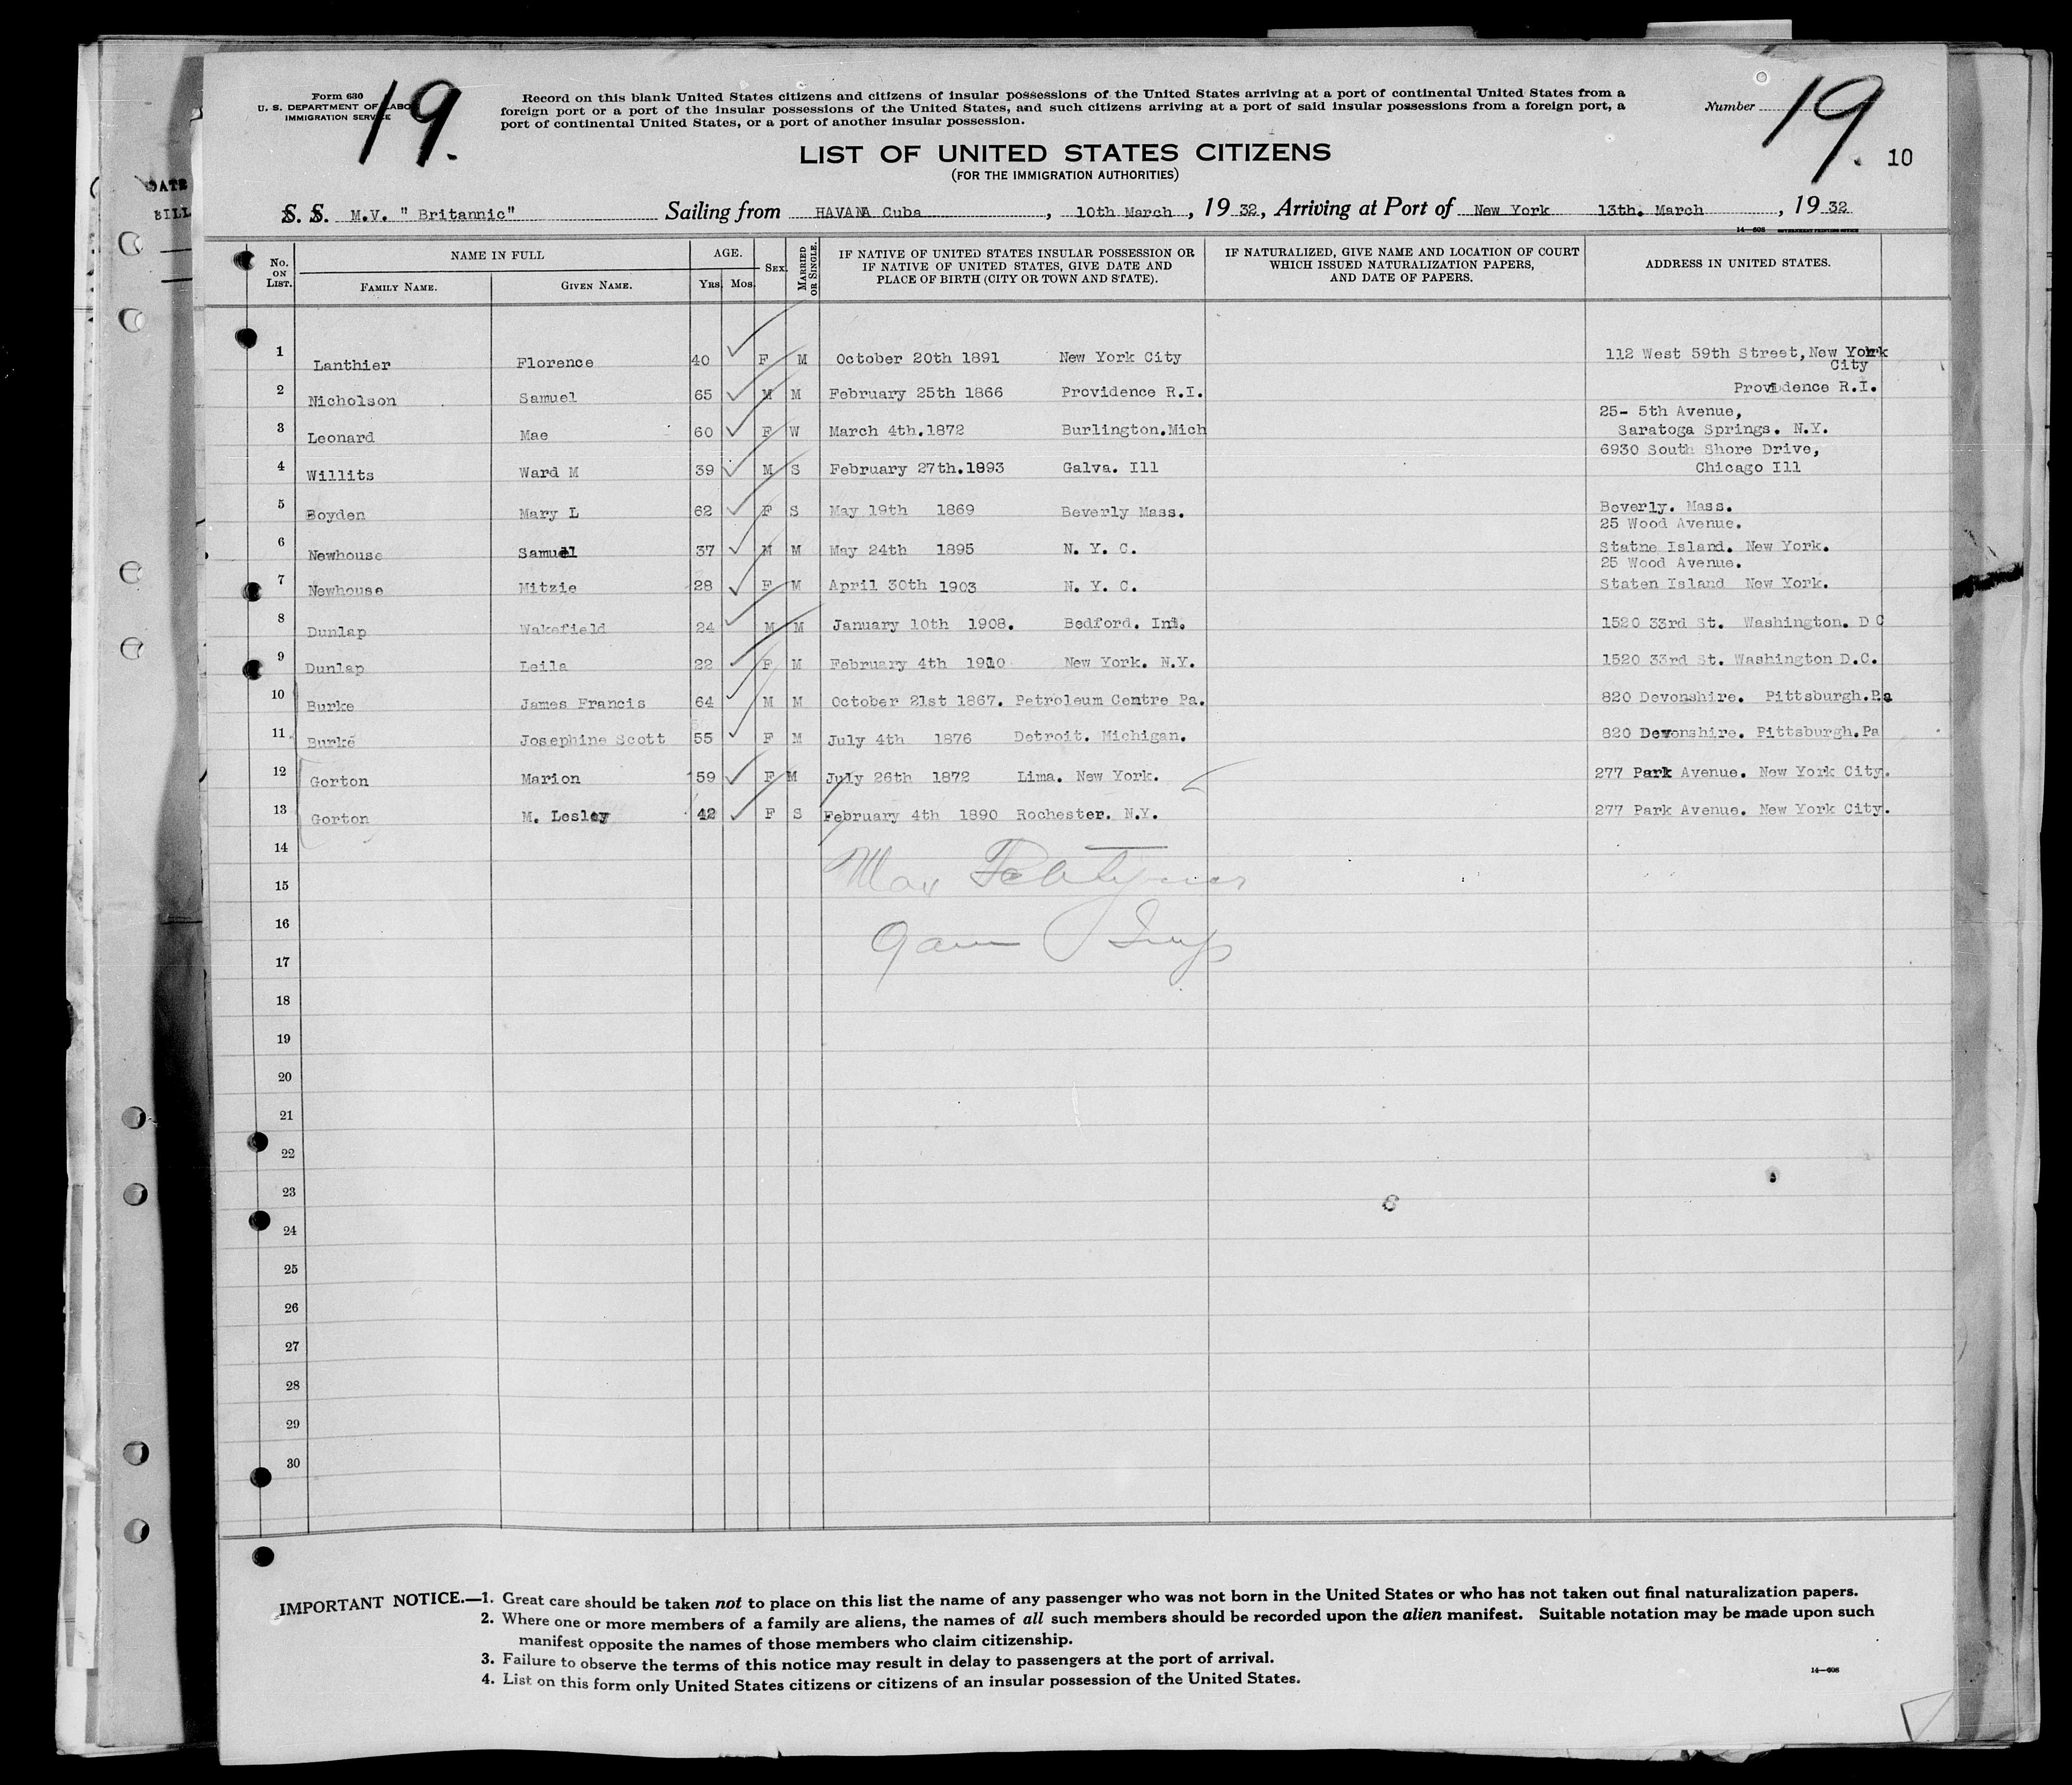 Form 630
U. S. DEPARTMENT OF LABOR
IMMIGRATION SERVICE
19.
Record on this blank United States citizens and citizens of insular possessions of the United States arriving at a port of continental United States from a
foreign port or a port of the insular possessions of the United States, and such citizens arriving at a port of said insular possessions from a foreign port, a
port of continental United States, or a port of another insular possession.
Number 19.
10
LIST OF UNITED STATES CITIZENS
(FOR THE IMMIGRATION AUTHORITIES)
S. S. M.V. " Britannic" Sailing from HAVANA Cuba, 10th March, 1932, Arriving at Port of New York 13th. March, 1932
14—608 GOVERNMENT PRINTING OFFICE
DATE
BILL
No. ON LIST. NAME IN FULL FAMILY NAME. GIVEN NAME. AGE. YRS. MOS. SEX. MARRIED OR SINGLE. IF NATIVE OF UNITED STATES INSULAR POSSESSION OR IF NATIVE OF UNITED STATES, GIVE DATE AND PLACE OF BIRTH (CITY OR TOWN AND STATE). IF NATURALIZED, GIVE NAME AND LOCATION OF COURT WHICH ISSUED NATURALIZATION PAPERS, AND DATE OF PAPERS. ADDRESS IN UNITED STATES.
1 Lanthier Florence 40 F M October 20th 1891 New York City 112 West 59th Street, New York City
2 Nicholson Samuel 65 M M February 25th 1866 Providence R.I. Providence R.I.
3 Leonard Mae 60 F W March 4th.1872 Burlington.Mich 25- 5th Avenue, Saratoga Springs. N.Y.
4 Willits Ward M 39 M S February 27th.1893 Galva. Ill 6930 South Shore Drive, Chicago Ill
5 Boyden Mary L 62 F S May 19th 1869 Beverly Mass. Beverly. Mass.
6 Newhouse Samuel 37 M M May 24th 1895 N. Y. C. 25 Wood Avenue. Statne Island. New York.
7 Newhouse Mitzie 28 F M April 30th 1903 N. Y. C. 25 Wood Avenue. Staten Island New York.
8 Dunlap Wakefield 24 M M January 10th 1908. Bedford. Ind. 1520 33rd St. Washington. D C
9 Dunlap Leila 22 F M February 4th 1910 New York. N.Y. 1520 33rd St. Washington D.C.
10 Burke James Francis 64 M M October 21st 1867. Petroleum Centre Pa. 820 Devonshire. Pittsburgh.Pa
11 Burke Josephine Scott 55 F M July 4th 1876 Detroit. Michigan. 820 Devonshire. Pittsburgh.Pa
12 Gorton Marion 59 F M July 26th 1872 Lima. New York. 277 Park Avenue. New York City.
13 Gorton M. Lesley 42 F S February 4th 1890 Rochester. N.Y. 277 Park Avenue. New York City.
14
15 Max
16
17
18
19
20
21
22
23
24
25
26
27
28
29
30
IMPORTANT NOTICE.—1. Great care should be taken not to place on this list the name of any passenger who was not born in the United States or who has not taken out final naturalization papers.
2. Where one or more members of a family are aliens, the names of all such members should be recorded upon the alien manifest. Suitable notation may be made upon such
manifest opposite the names of those members who claim citizenship.
3. Failure to observe the terms of this notice may result in delay to passengers at the port of arrival.
4. List on this form only United States citizens or citizens of an insular possession of the United States.
14—608